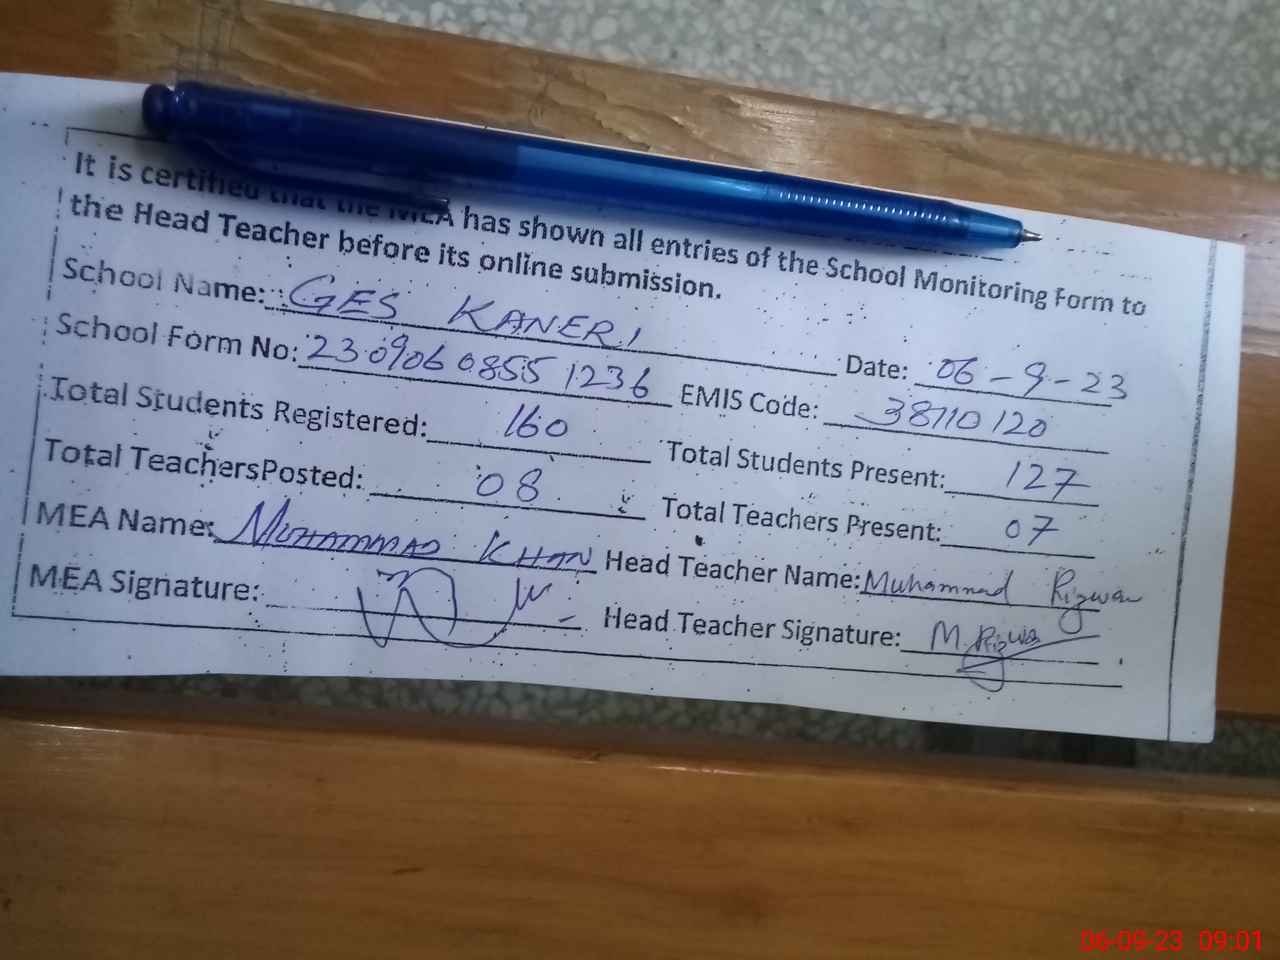 It is certified that the MEA has shown all entries of the School Monitoring Form to
the Head Teacher before its online submission.
School Name: GES KANERI Date: 06-9-23
School Form No: 230906 0855 1236 EMIS Code: 38110120
Total Students Registered: 160 Total Students Present: 127
Total TeachersPosted: 08 Total Teachers Present: 07
MEA Name: MUHAMMAD KHAN Head Teacher Name: Muhammad Rizwan
MEA Signature: Head Teacher Signature: M. Rizwan
06-09-23 09:01